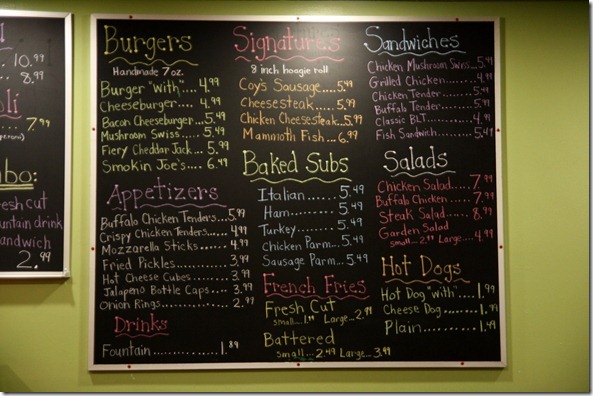 10.99
8.99
7.99
fresh cut
fountain drink
sandwich
2.99
Burgers
Handmade 7 oz.
Burger "with".... 4.99
Cheeseburger.... 4.99
Bacon Cheeseburger.. 5.49
Mushroom Swiss... 5.49
Fiery Cheddar Jack.. 5.49
Smokin Joe's.... 6.49
Appetizers
Buffalo Chicken Tenders... 5.99
Crispy Chicken Tenders.... 4.99
Mozzarella Sticks....... 4.99
Fried Pickles......... 3.99
Hot Cheese Cubes....... 3.99
Jalapeno Bottle Caps.... 3.99
Onion Rings............ 2.99
Drinks
Fountain............. 1.89
Signatures
8 inch hoagie roll
Coy's Sausage..... 5.49
Cheesesteak...... 5.49
Chicken Cheesesteak.. 5.99
Mammoth Fish.... 6.99
Baked Subs
Italian....... 5.49
Ham......... 5.49
Turkey...... 5.49
Chicken Parm... 5.49
Sausage Parm... 5.49
French Fries
Fresh Cut
small.... 1.99 Large... 2.99
Battered
small... 2.49 Large... 3.99
Sandwiches
Chicken Mushroom Swiss... 5.49
Grilled Chicken..... 4.99
Chicken Tender..... 5.49
Buffalo Tender..... 5.49
Classic BLT........ 4.99
Fish Sandwich...... 5.49
Salads
Chicken Salad..... 7.99
Buffalo Chicken.... 7.99
Steak Salad...... 8.99
Garden Salad
small... 2.99 Large... 4.99
Hot Dogs
Hot Dog "with".... 1.99
Cheese Dog........ 1.99
Plain......... 1.49